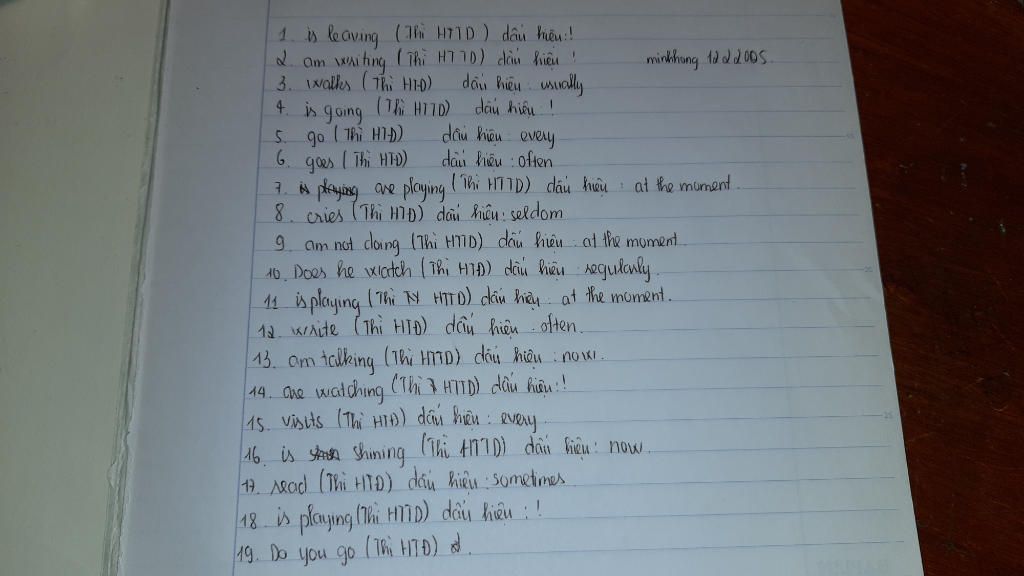 1. is leaving (Thì HTTD) dấu hiệu:!
2. am writing (Thì HTTD) dấu hiệu ! minhhong 1222005.
3. walks (Thì HTĐ) dấu hiệu: usually
4. is going (Thì HTTD) dấu hiệu: !
5. go (Thì HTĐ) dấu hiệu: every
6. goes (Thì HTĐ) dấu hiệu: often
7. is playing are playing (Thì HTTD) dấu hiệu: at the moment.
8. cries (Thì HTĐ) dấu hiệu: seldom
9. am not doing (Thì HTTD) dấu hiệu: at the moment.
10. Does he watch (Thì HTĐ) dấu hiệu: regularly.
11. is playing (Thì HTTD) dấu hiệu: at the moment.
12. write (Thì HTĐ) dấu hiệu: often.
13. am talking (Thì HTTD) dấu hiệu: now.
14. are watching (Thì HTTD) dấu hiệu:!
15. visits (Thì HTĐ) dấu hiệu: every.
16. is shining (Thì HTTD) dấu hiệu: now.
17. read (Thì HTĐ) dấu hiệu: sometimes.
18. is playing (Thì HTTD) dấu hiệu: !
19. Do you go (Thì HTĐ)